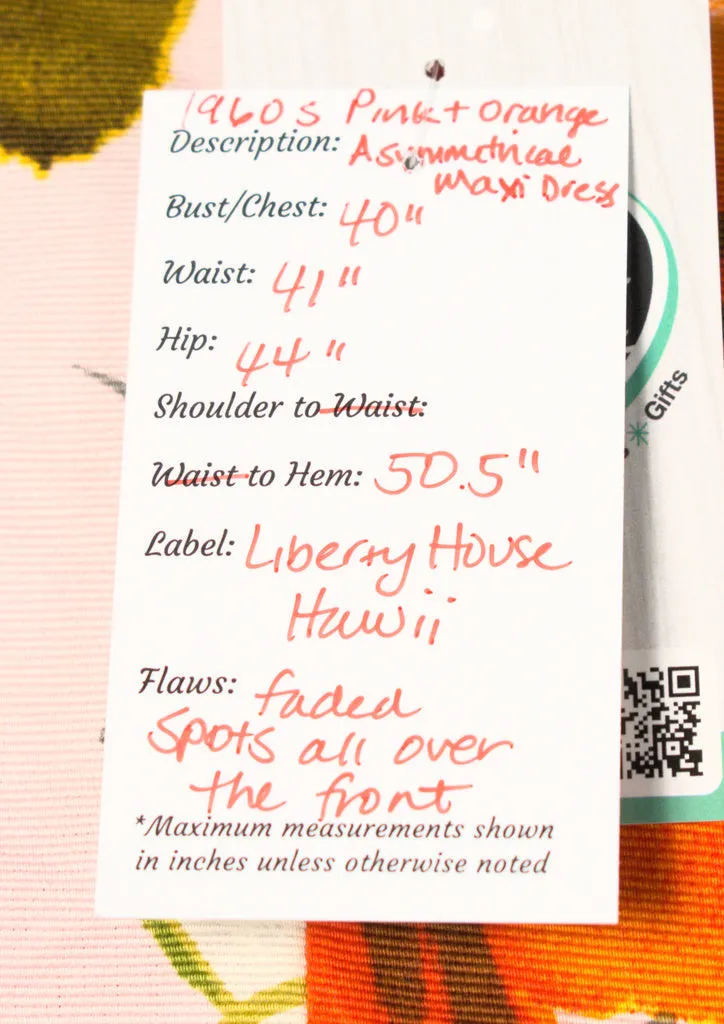 1960s Pink + Orange
Description: Asymmetrical
Maxi Dress
Bust/Chest: 40"
Waist: 41"
Hip: 44"
Shoulder to Waist:
Waist to Hem: 50.5"
Label: Liberty House
Hawii
Flaws: faded
spots all over
the front
*Maximum measurements shown
in inches unless otherwise noted
Gifts